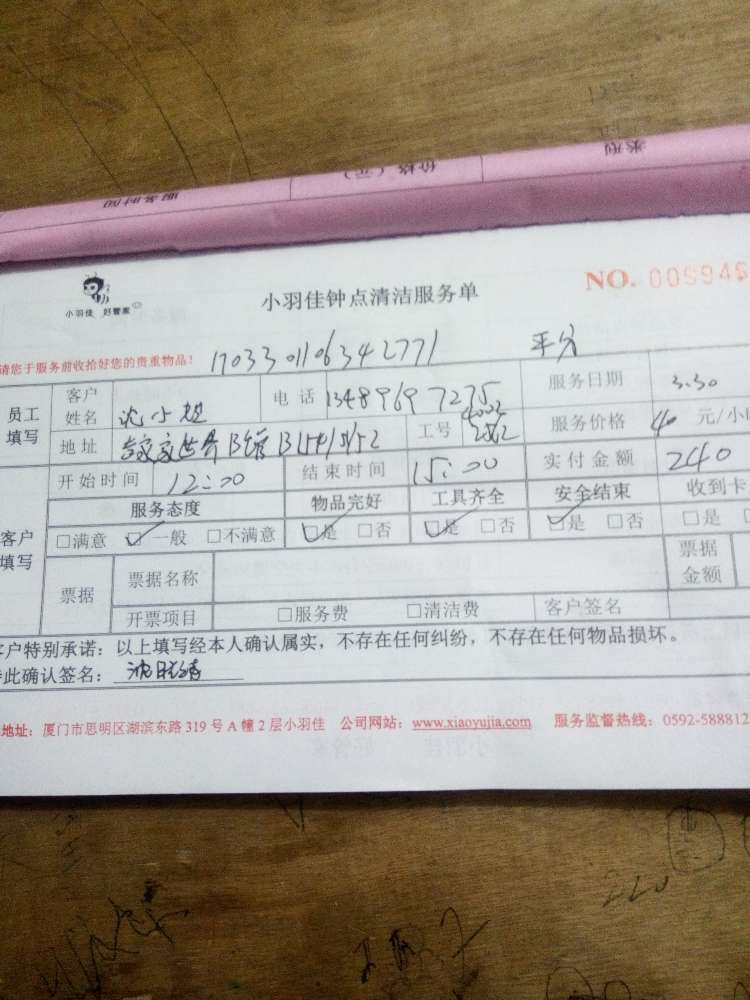 服务时间 价格（元） 类型
小羽佳 好管家
小羽佳钟点清洁服务单
NO. 005946
请您于服务前收拾好您的贵重物品！ 17033 01106342771 平分
员工填写 客户姓名 沈小姐 电话 13489697275 服务日期 3.30
地址 B馆 工号 服务价格 40 元/小
客户填写 开始时间 12:00 结束时间 15:00 实付金额 240
服务态度 物品完好 工具齐全 安全结束 收到卡
□满意 □一般 □不满意 □是 □否 □是 □否 □是 □否 □是
票据 票据名称 票据金额
开票项目 □服务费 □清洁费 客户签名
客户特别承诺：以上填写经本人确认属实，不存在任何纠纷，不存在任何物品损坏。
此确认签名：
地址：厦门市思明区湖滨东路 319 号 A 幢 2 层小羽佳 公司网站：www.xiaoyujia.com 服务监督热线：0592-588812